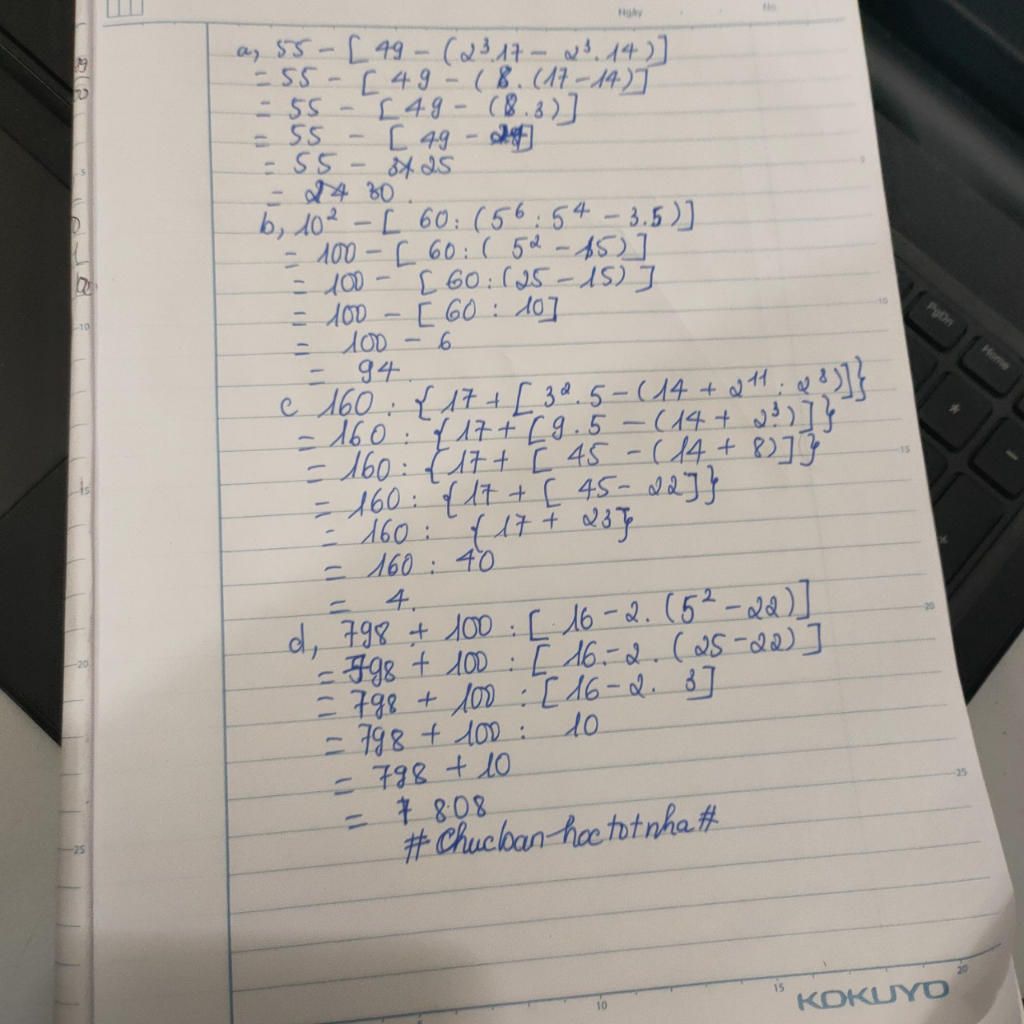 Ngày No.
a, 55 - [ 49 - (2³.17 - 2³.14)]
= 55 - [ 49 - (8.(17-14)]
= 55 - [49 - (8.3)]
= 55 - [ 49 - 24]
= 55 - 25
= 30.
b, 10² - [ 60:(5⁶:5⁴ - 3.5)]
= 100 - [ 60:( 5² - 15)]
= 100 - [60:(25 - 15) ]
= 100 - [ 60 : 10]
= 100 - 6
= 94.
c 160 : {17 + [ 3².5 - (14 + 2¹¹ : 2⁸)]}
= 160 : {17 + [9.5 - (14 + 2³)]}
= 160 : {17 + [ 45 - (14 + 8)]}
= 160 : {17 + [ 45 - 22]}
= 160 : {17 + 23}
= 160 : 40
= 4.
d, 798 + 100 : [ 16 - 2. (5² - 22)]
= 798 + 100 : [ 16 - 2. (25 - 22) ]
= 798 + 100 : [16 - 2. 3]
= 798 + 100 : 10
= 798 + 10
= 808
#chucban-hoctotnha#
KOKUYO
5
10
15
20
25
5
10
15
20
25
10
15
20
PgDn
Home
*